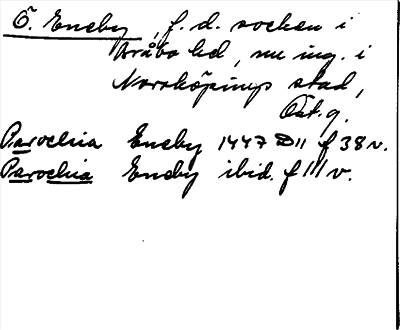 Ö. Eneby, f. d. socken i
Bråbo hd, nu ing. i
Norrköpings stad,
Öst.g.
Parochia Eneby 1447 D 11 f 38 v.
Parochia Eneby ibid. f 111 v.